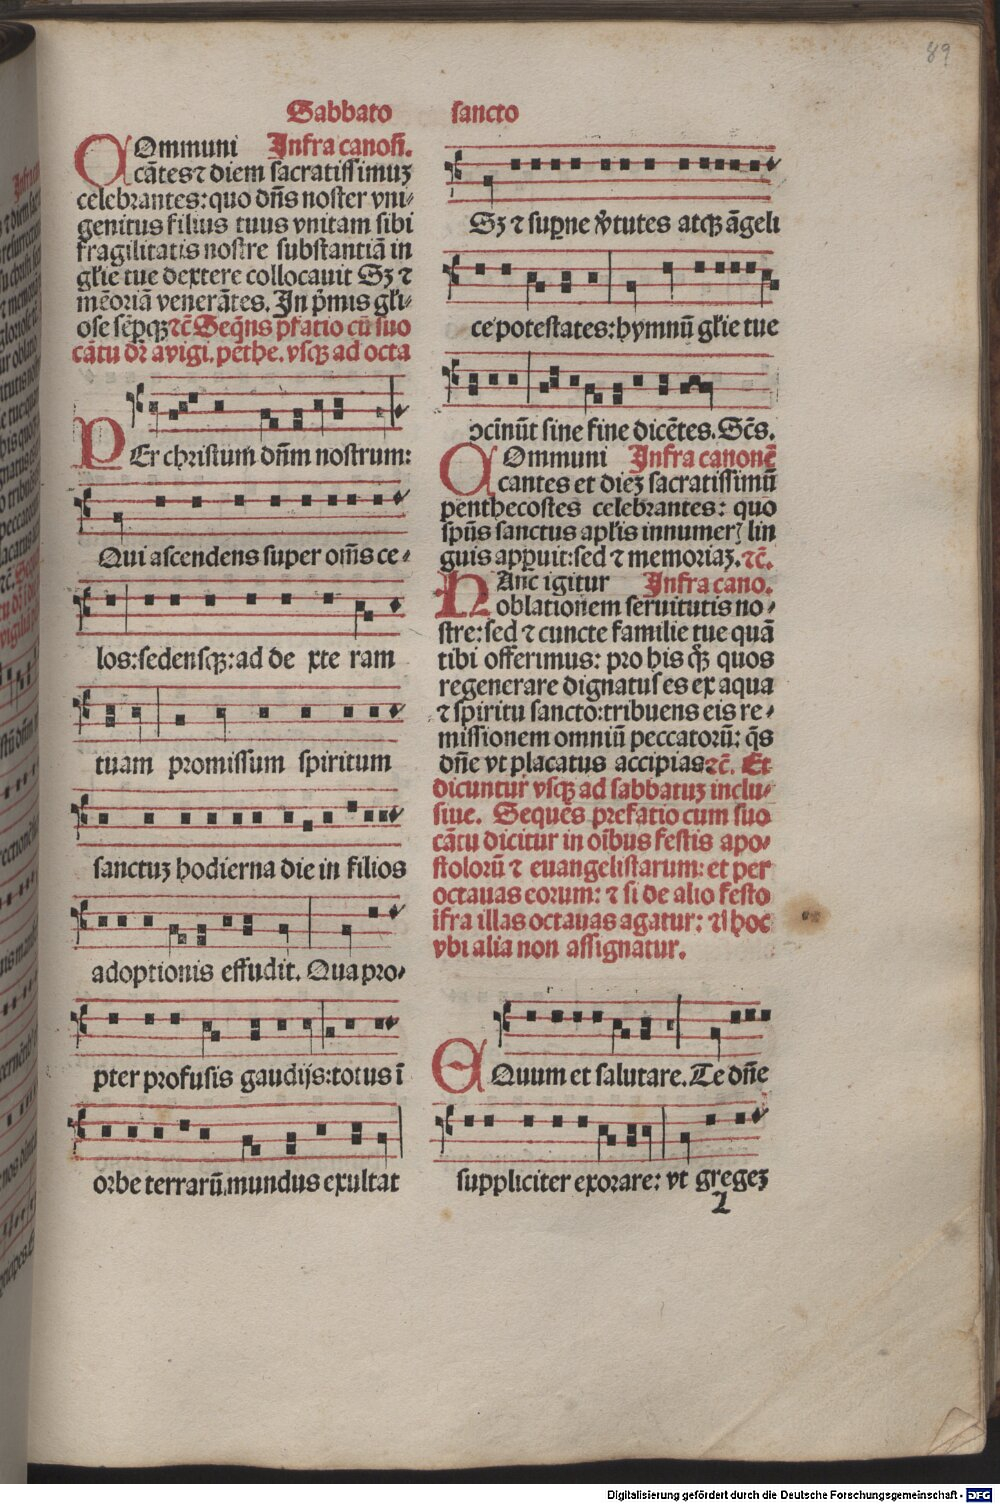 89
Sabbato sancto
COmmuni Infra canoñ.
cãtes ⁊ diem sacratissimuꝫ
celebrantes: quo dñs noster vni-
genitus filius tuus vnitam sibi
fragilitatis nostre substantiã in
gľie tue dextere collocauit Sꝫ ⁊
mẽoriã venerãtes. In p̃mis gľi-
ose sẽpqꝫ ⁊c̃ Seq̃ns p̃fatio cũ suo
cãtu dr̃ a vigi. pẽthe. vsqꝫ ad octa
PEr christum dñm nostrum:
Qui ascendens super om̃s ce-
los: sedensqꝫ: ad de xte ram
tuam promissum spiritum
sanctuꝫ hodierna die in filios
adoptionis effudit. Qua pro-
pter profusis gaudijs: totus ĩ
orbe terrarũ mundus exultat
Sꝫ ⁊ suꝑne v̾tutes atqꝫ ãgeli
ce potestates: hymnũ gľie tue
ↄcinũt sine fine dicẽtes. Sc̃s.
COmmuni Infra canonẽ
cantes et dieꝫ sacratissimũ
penthecostes celebrantes: quo
sp̃us sanctus apľis innumerꝭ lin
guis apꝑuit: sed ⁊ memoriaꝫ. ⁊c̃.
HAnc igitur Infra cano.
oblationem seruitutis no-
stre: sed ⁊ cuncte familie tue quã
tibi offerimus: pro his q̃ꝫ quos
regenerare dignatus es ex aqua
⁊ spiritu sancto: tribuens eis re-
missionem omniũ peccatorũ: q̃s
dñe vt placatus accipias ⁊c̃. Et
dicuntur vsqꝫ ad sabbatuꝫ inclu-
siue. Sequẽs prefatio cum suo
cãtu dicitur in oĩbus festis apo-
stolorũ ⁊ euangelistarum: et per
octauas eorum: ⁊ si de alio festo
ĩfra illas octauas agatur: ⁊ hoc
vbi alia non assignatur.
EQuum et salutare. Te dñe
suppliciter exorare: vt gregeꝫ
Digitalisierung gefördert durch die Deutsche Forschungsgemeinschaft - DFG